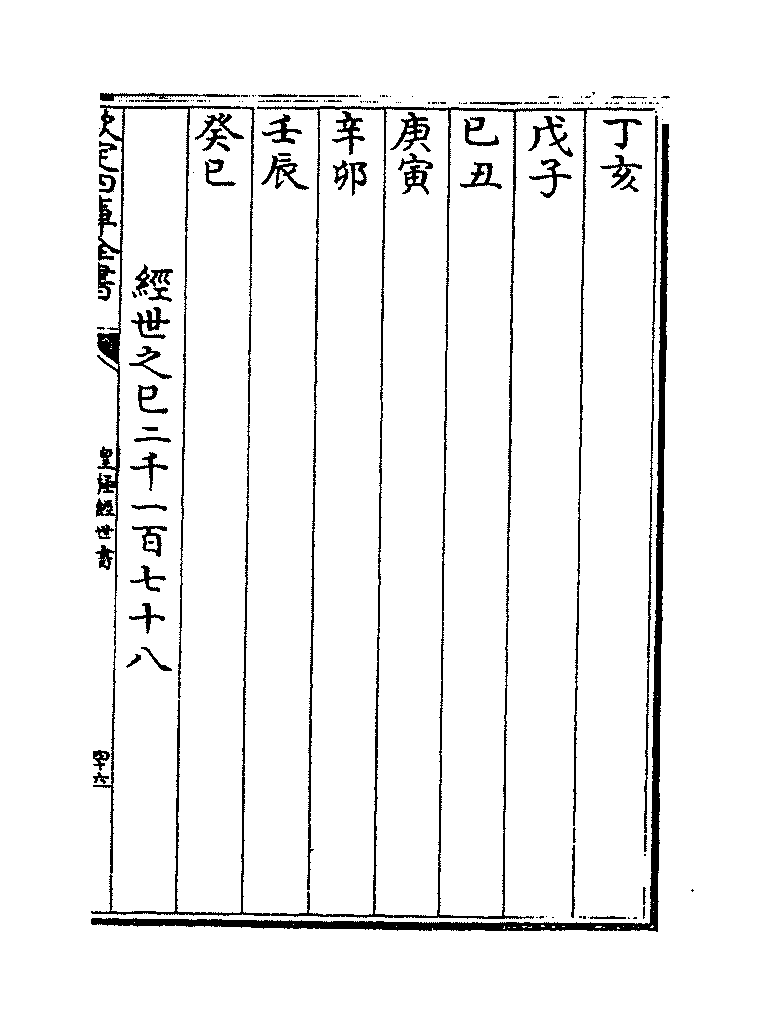 丁亥
戊子
己丑
庚寅
辛卯
壬辰
癸巳
經世之巳二千一百七十八
欽定四庫全書
皇極經世書